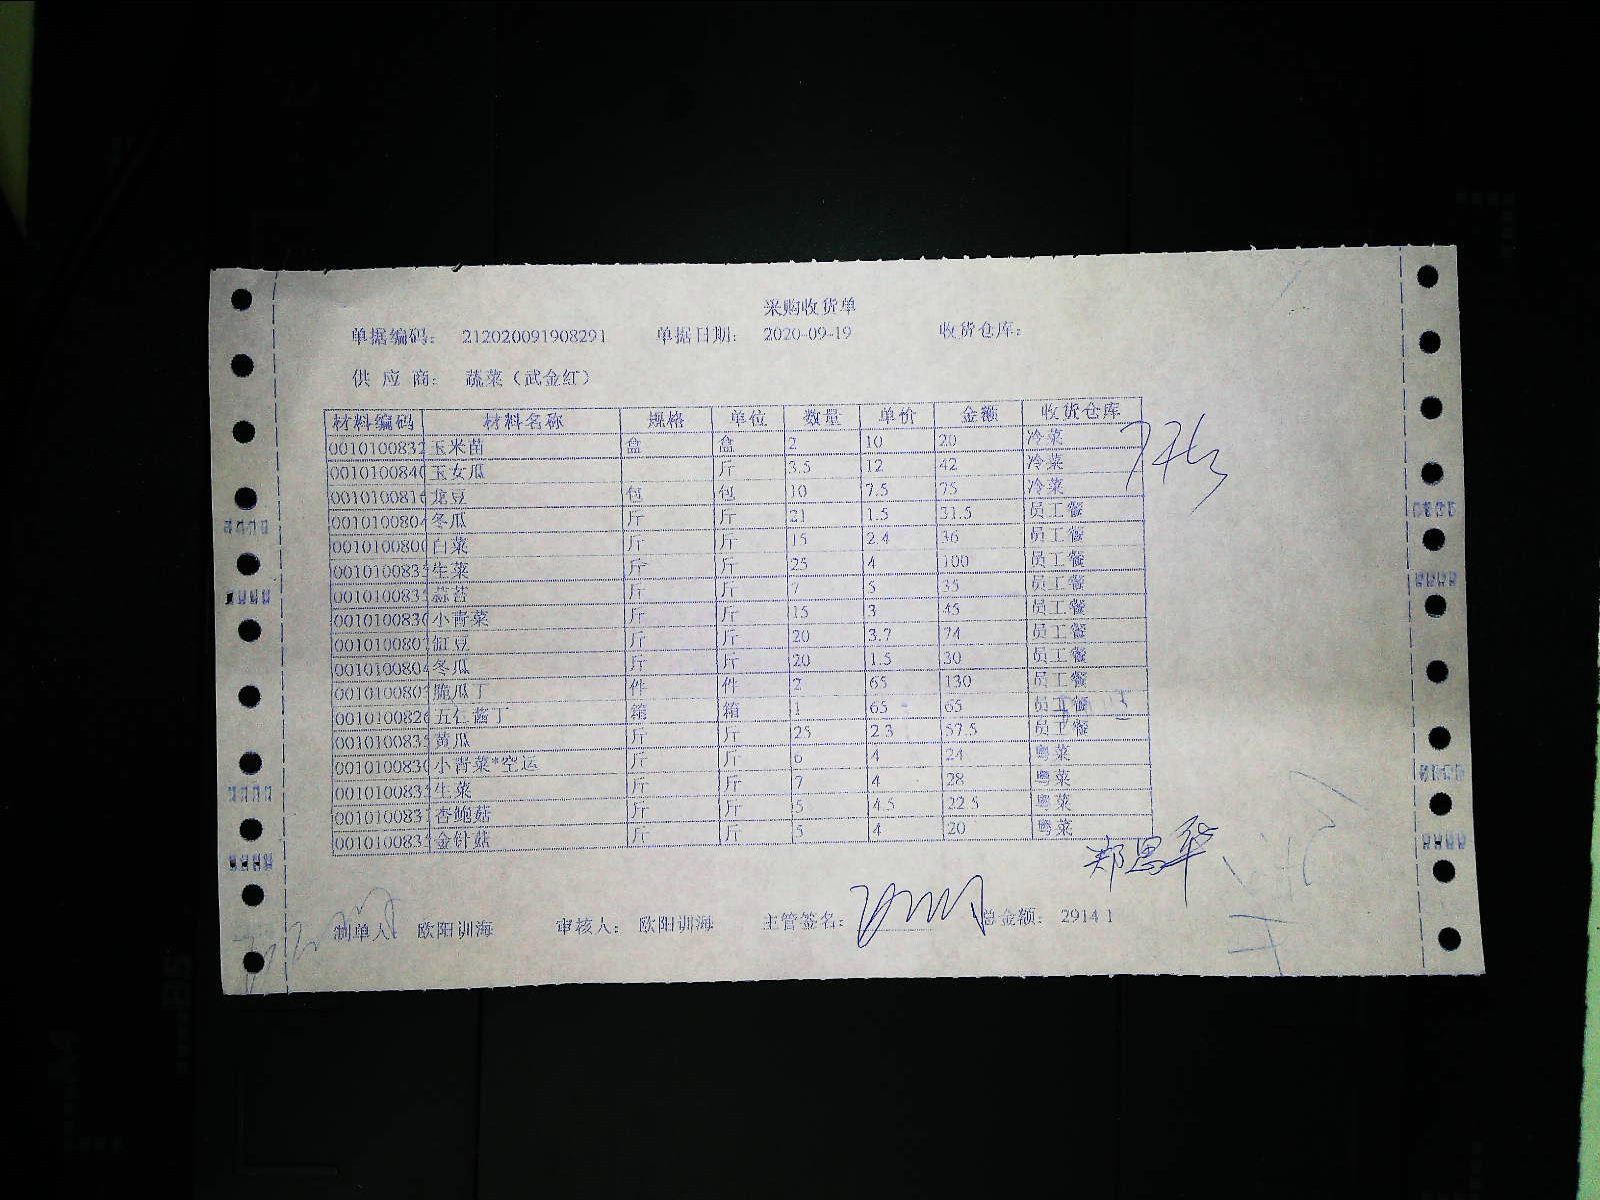 采购收货单
单据编码： 212020091908291 单据日期： 2020-09-19 收货仓库：
供 应 商： 蔬菜（武金红）
材料编码 材料名称 规格 单位 数量 单价 金额 收货仓库
0010100832 玉米苗 盒 盒 2 10 20 冷菜
001010084 玉女瓜 斤 3.5 12 42 冷菜
001010081 豆 包 包 10 7.5 75 冷菜
001010080 冬瓜 斤 斤 21 1.5 31.5 员工餐
001010080 白菜 斤 斤 15 2.4 36 员工餐
001010083 生菜 斤 斤 25 4 100 员工餐
001010083 蒜苔 斤 斤 7 5 35 员工餐
001010083 小青菜 斤 斤 15 3 45 员工餐
001010080 豇豆 斤 斤 20 3.7 74 员工餐
001010080 冬瓜 斤 斤 20 1.5 30 员工餐
001010080 脆瓜丁 件 件 2 65 130 员工餐
001010082 五仁酱丁 箱 箱 1 65 65 员工餐
001010083 黄瓜 斤 斤 25 2.3 57.5 员工餐
001010083 小青菜*空运 斤 斤 6 4 24 粤菜
001010083 生菜 斤 斤 7 4 28 粤菜
001010083 杏鲍菇 斤 斤 5 4.5 22.5 粤菜
001010083 金针菇 斤 斤 5 4 20 粤菜
郑思华
制单人： 欧阳训海 审核人： 欧阳训海 主管签名： 总金额： 2914.1